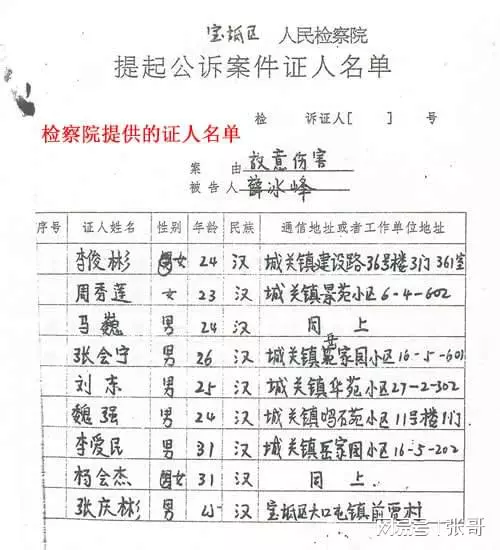 宝坻区 人民检察院
提起公诉案件证人名单
检 诉证人[ ] 号
检察院提供的证人名单
案由 故意伤害
被告人 薛冰峰
序号 证人姓名 性别 年龄 民族 通信地址或者工作单位地址
李俊彬 男 24 汉 城关镇建设路36号楼3门361室
周秀莲 女 23 汉 城关镇景苑小区6-4-602
马巍 男 24 汉 同上
张会宁 男 26 汉 城关镇 家园小区16-5-601
刘东 男 25 汉 城关镇华苑小区27-2-302
魏强 男 24 汉 城关镇鸣石苑小区11号楼1门
李爱民 男 31 汉 城关镇岳家园小区16-5-202
杨会杰 女 31 汉 同上
张庆彬 男 汉 宝坻区大口屯镇前贾村
搜狐号@张哥